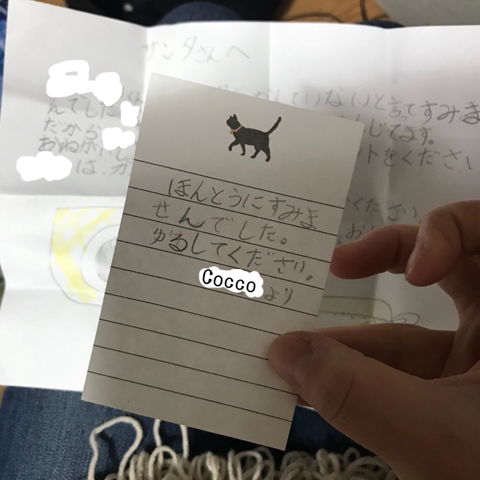 サンタさんへ
していないと言ってすみま
んでした
じてます。
だから
おねがいし トをください
は、
ください
ほんとうにすみま
せんでした。
ゆるしてください。
Coccoより